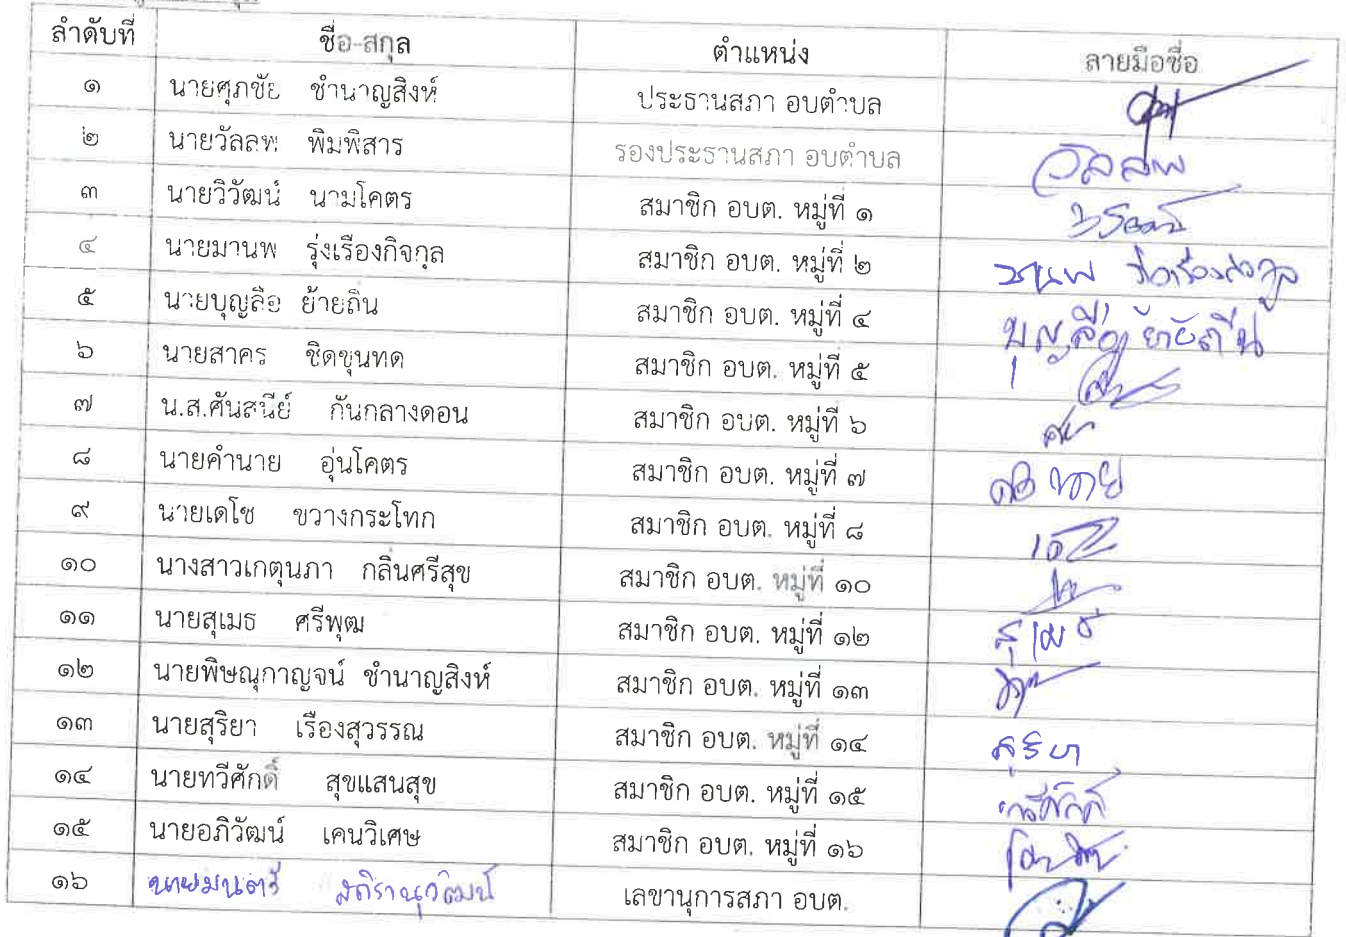 ลำดับที่ ชื่อ-สกุล ตำแหน่ง ลายมือชื่อ
๑ นายศุภชัย ชำนาญสิงห์ ประธานสภา อบตำบล
๒ นายวัลลพ พิมพิสาร รองประธานสภา อบตำบล วัลลพ
๓ นายวิวัฒน์ นามโคตร สมาชิก อบต. หมู่ที่ ๑
๔ นายมานพ รุ่งเรืองกิจกุล สมาชิก อบต. หมู่ที่ ๒ มานพ รุ่งเรืองกิจกุล
๕ นายบุญลือ ย้ายถิ่น สมาชิก อบต. หมู่ที่ ๔ บุญลือ ย้ายถิ่น
๖ นายสาคร ชิดขุนทด สมาชิก อบต. หมู่ที่ ๕
๗ น.ส.ศันสนีย์ กันกลางดอน สมาชิก อบต. หมู่ที่ ๖
๘ นายคำนาย อุ่นโคตร สมาชิก อบต. หมู่ที่ ๗ คำนาย
๙ นายเดโช ขวางกระโทก สมาชิก อบต. หมู่ที่ ๘
๑๐ นางสาวเกตุนภา กลิ่นศรีสุข สมาชิก อบต. หมู่ที่ ๑๐
๑๑ นายสุเมธ ศรีพุฒ สมาชิก อบต. หมู่ที่ ๑๒ สุเมธ
๑๒ นายพิษณุกาญจน์ ชำนาญสิงห์ สมาชิก อบต. หมู่ที่ ๑๓
๑๓ นายสุริยา เรืองสุวรรณ สมาชิก อบต. หมู่ที่ ๑๔ สุริยา
๑๔ นายทวีศักดิ์ สุขแสนสุข สมาชิก อบต. หมู่ที่ ๑๕ ทวีศักดิ์
๑๕ นายอภิวัฒน์ เคนวิเศษ สมาชิก อบต. หมู่ที่ ๑๖
๑๖ นายมนตรี สถิรานุวัฒน์ เลขานุการสภา อบต.